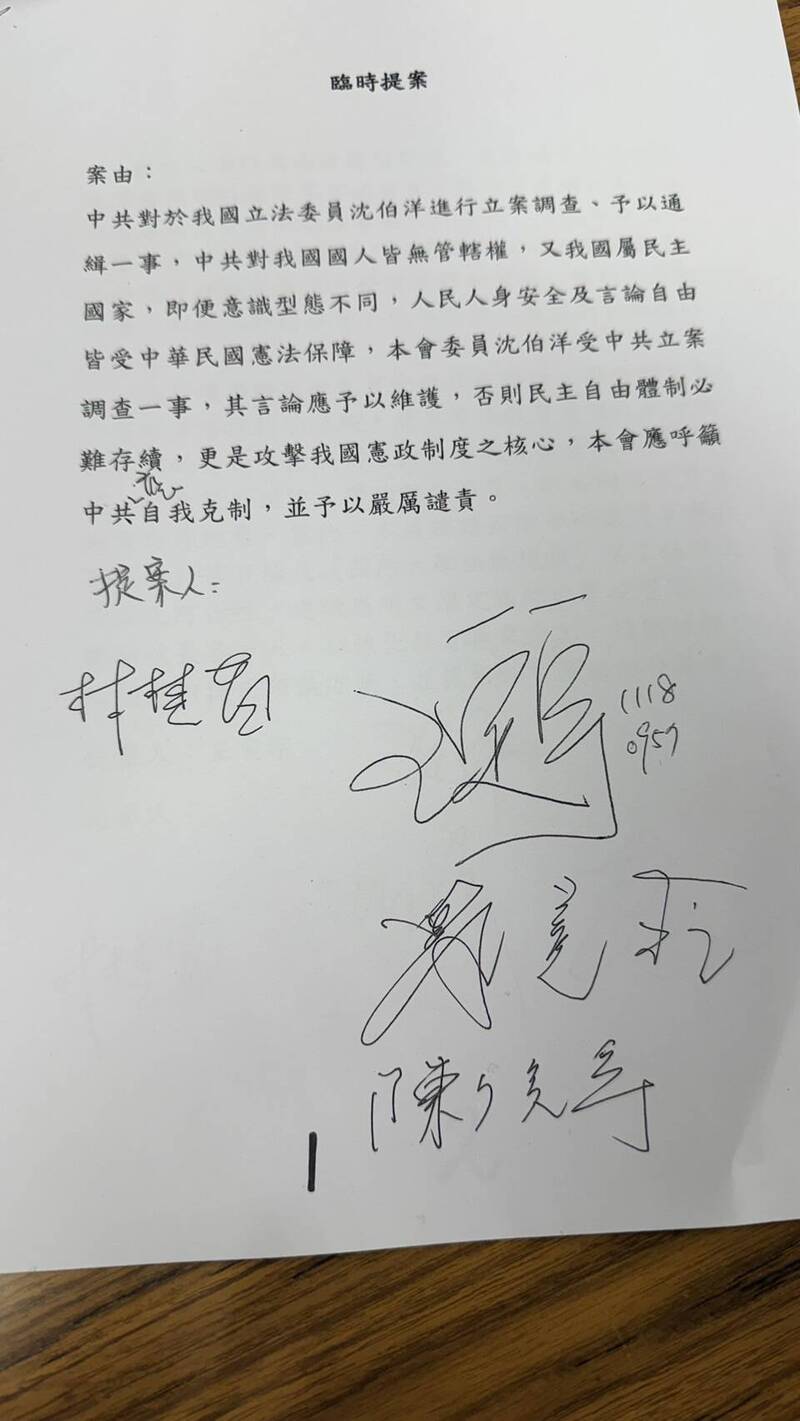 臨時提案
案由：
中共對於我國立法委員沈伯洋進行立案調查、予以通
緝一事，中共對我國國人皆無管轄權，又我國屬民主
國家，即便意識型態不同，人民人身安全及言論自由
皆受中華民國憲法保障，本會委員沈伯洋受中共立案
調查一事，其言論應予以維護，否則民主自由體制必
難存續，更是攻擊我國憲政制度之核心，本會應呼籲
中共應自我克制，並予以嚴厲譴責。
提案人：
1118
0957
陳